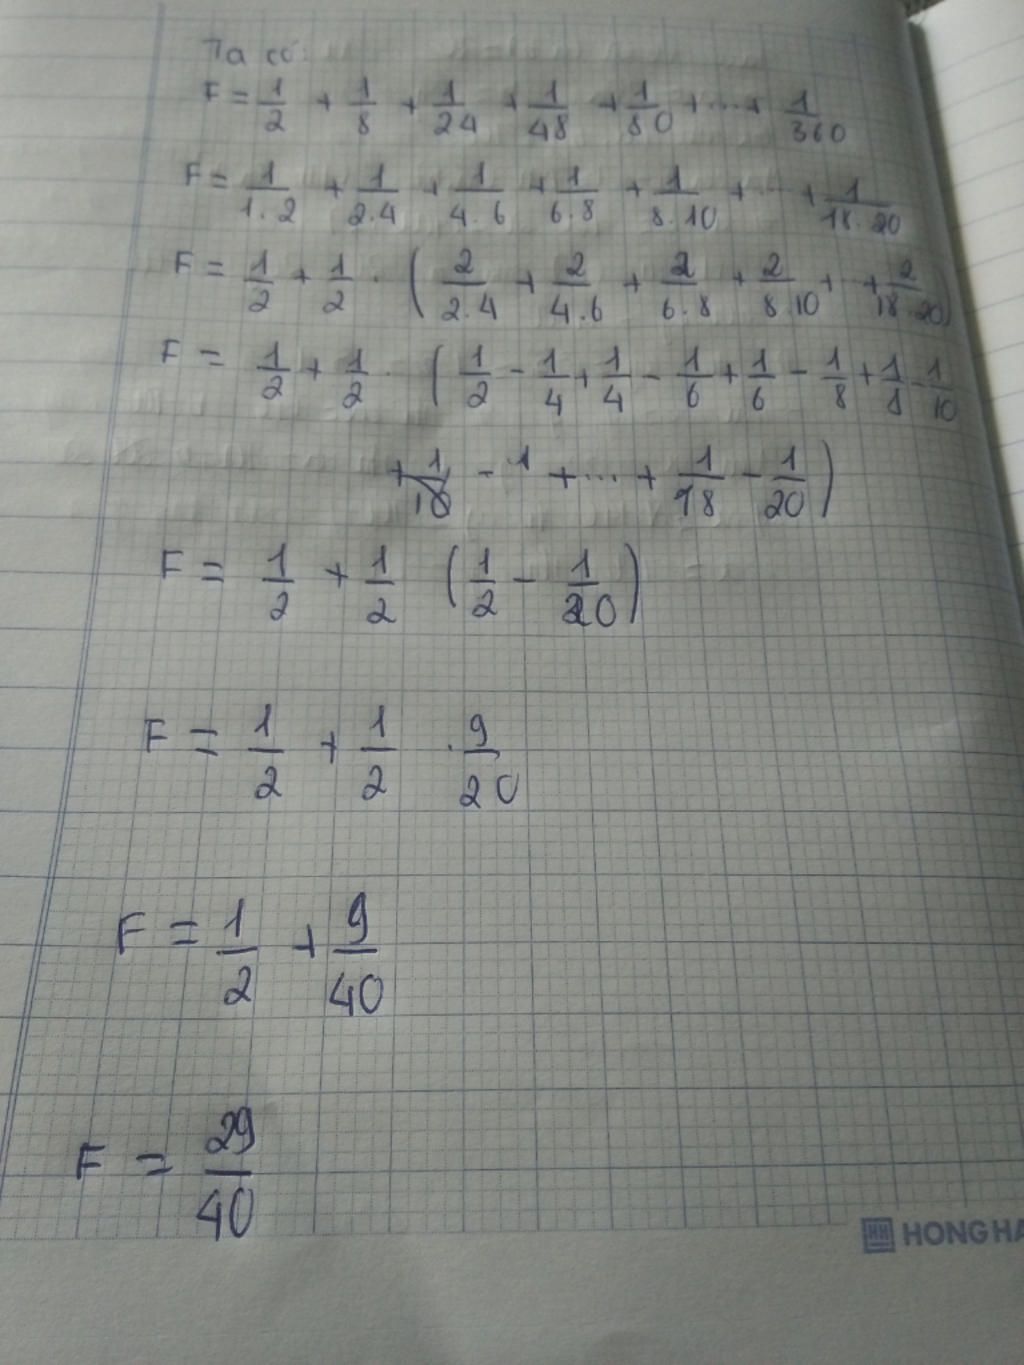 Ta có:
F = 1/2 + 1/8 + 1/24 + 1/48 + 1/80 + ... + 1/360
F = 1/1.2 + 1/2.4 + 1/4.6 + 1/6.8 + 1/8.10 + ... + 1/18.20
F = 1/2 + 1/2 . (2/2.4 + 2/4.6 + 2/6.8 + 2/8.10 + ... + 2/18.20)
F = 1/2 + 1/2 . (1/2 - 1/4 + 1/4 - 1/6 + 1/6 - 1/8 + 1/8 - 1/10
+ 1/10 - 1 + ... + 1/18 - 1/20)
F = 1/2 + 1/2 (1/2 - 1/20)
F = 1/2 + 1/2 . 9/20
F = 1/2 + 9/40
F = 29/40
HONG HA